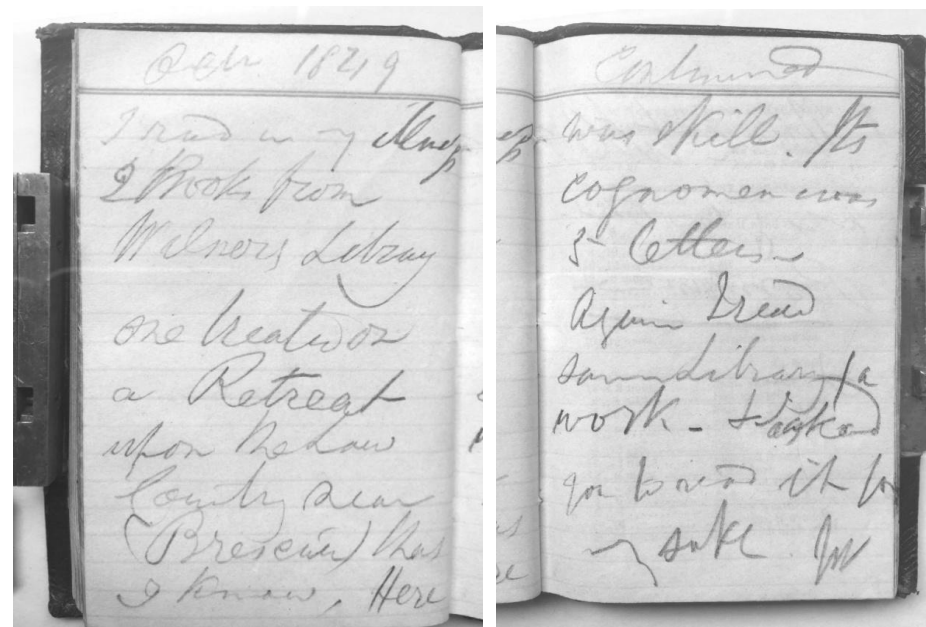 1849
I read in my illness
2 Books from
Library
one treated on
a Retreat
upon the Low
Country near
(Brescia) that
I know, Here
Continued
was skill. Its
cognomen was
5 letters
Again I read
same Library a
work - & asked
you to read it for
my sake.